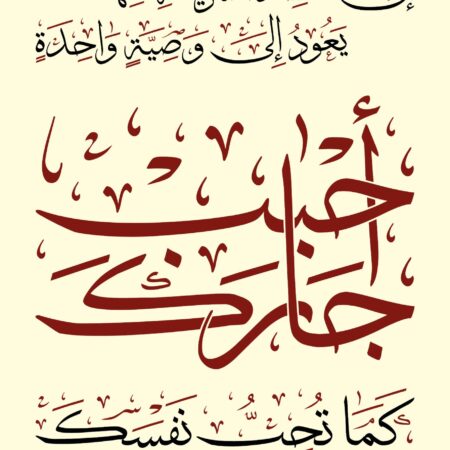 يَعُودُ إِلَىَ وَصِيَّةٍ وَاحِدَةٍ
أَحْبِبْ
جَارَكَ
كَمَا تُحِبُّ نَفْسَكَ